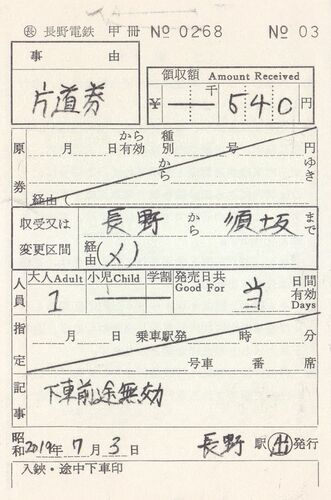 ㊐ 長野電鉄 甲冊 № 0268 № 03
事由
片道券
領収額 Amount Received
千 540 円
原券
月 日 から有効 種別 号 円
から ゆき
経由(
収受又は変更区間
長野 から 須坂 まで
経由(〆)
人員
大人Adult 小児Child 学割 発売日共 Good For 日間有効 Days
1 当
指定
月 日 乗車駅発 時 分
号車 番 席
記事
下車前途無効
昭和 2019年 7月 3日 長野 駅 出 発行
入鋏・途中下車印